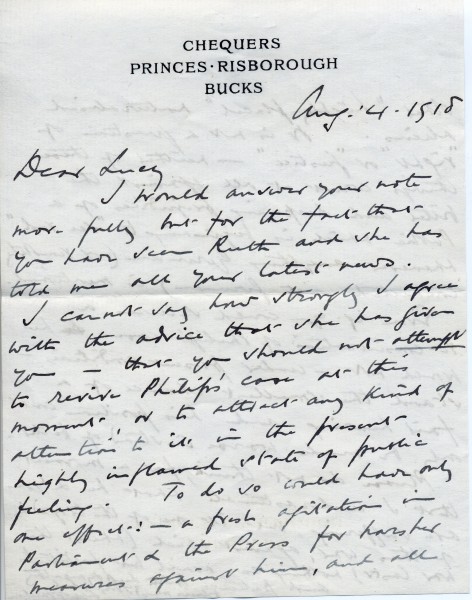 CHEQUERS
PRINCES·RISBOROUGH
BUCKS
Aug. 4. 1918
Dear Lucy
I would answer your note
more fully but for the fact that
you have seen Ruth and she has
told me all your latest news.
I cannot say how strongly I agree
with the advice that she has given
you – that you should not attempt
to revive Philip's case at this
moment, or to attract any kind of
attention to it in the present
highly inflamed state of public
feeling. To do so could have only
one effect: – a fresh agitation in
Parliament & the Press for harsher
measures against him, and all